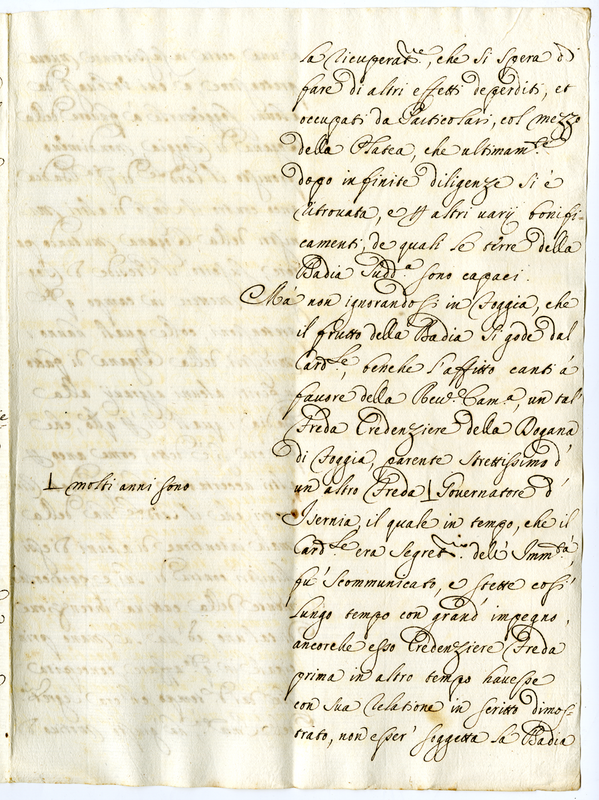 la ricuperat.ne, che si spera di
fare di altri effetti deperditi, et
occupati da Particolari, col mezzo
della Platea, che ultimam.te
dopo infinite diligenze si è
ritrovata, e p altri varij bonifi-
camenti, de quali le terre della
Badia sudd.a sono capaci.
Mà non ignorandosi in Foggia, che
il frutto della Badia si gode dal
Card.le, benche l'affitto canti à
favore della Rev. Cam.a, un tal'
Freda Credenziere della Dogana
di Foggia, parente strettissimo d'
un altro Freda Governatore d'
⊥ molti anni sono
Isernia, il quale in tempo, che il
Card.le era Segret.rio dell' Imm.tà,
fù scommunicato, e stette così
lungo tempo con grand' impegno,
ancorche esso Credenziere Freda
prima in altro tempo havesse
con sua Relatione in scritto dimos-
trato, non esser' soggetta la Badia